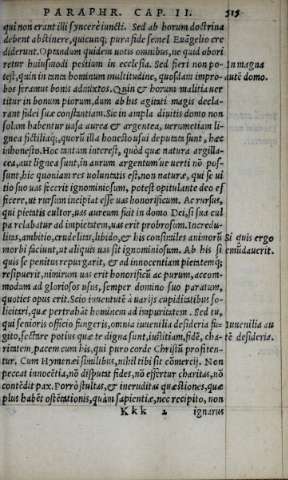 PARAPHR. CAP. II. 515
qui non erant illi syncere iuncti. Sed ab horum doctrina
debent abstinere, quicunq; pura fide semel Euãgelio cre
diderunt. Optandum quidem uotis omnibus, ne quid obori
retur huiusmodi pestium in ecclesia. Sed fieri non po- In magna
test, quin in tanta hominum multitudine, quosdam impro- autē domo.
bos feramus bonis admixtos. Quin & horum malitia uer
titur in bonum piorum, dum ab his agitati magis decla-
rant fidei suæ constantiam. Sic in ampla diuitis domo non
solum habentur uasa aurea & argentea, uerumetiam li-
gnea fictiliaq;, quorū illa honesto usui deputata sunt, hæc
inhonesto. Hoc tantum interest, quòd quæ natura argilla-
cea, aut lignea sunt, in aurum argentumue uerti nō pos-
sunt, hic quoniam res uoluntatis est, non naturæ, qui se ui
tio suo uas fecerit ignominiosum, potest opitulante deo ef
ficere, ut rursum incipiat esse uas honorificum. Ac rursus,
qui pietatis cultor, uas aureum fuit in domo Dei, si sua cul
pa relabatur ad impietatem, uas erit probrosum. Incredu-
litas, ambitio, crudelitas, libido, & his consimiles animorū Si quis ergo
morbi faciunt, ut aliquis uas sit ignominiosum. Ab his si emūdauerit.
quis se penitus repurgarit, & ad innocentiam pietatemq;
resipuerit, nimirum uas erit honorificū ac purum, accom-
modum ad gloriosos usus, semper domino suo paratum,
quoties opus erit. Scio inuentutē à uarijs cupiditatibus so-
licitari, quæ pertrahāt hominem ad impuritatem. Sed tu,
qui senioris officio fungeris, omnia iuuenilia desideria fu- Iuuenilia au
gito, sectare potius quæ te digna sunt, iustitiam, fidē, cha- tē desideria.
ritatem, pacem cum his, qui puro corde Christū profiten-
tur. Cum Hymenæi similibus, nihil tibi sit cōmercij. Non
peccat innocētia, nō disputat fides, nō effertur charitas, nō
contēdit pax. Porrò stultas, & ineruditas quæstiones, quæ
plus habēt ostētationis, quàm sapientiæ, nec recipito, non
Kkk 2 ignarus